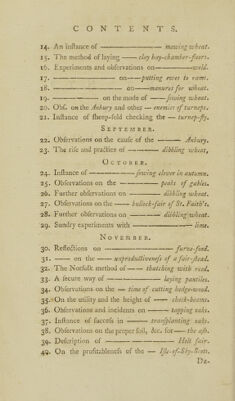 CONTENTS.
14. An instance of ——— mowing wheat.
15. The method of laying —— clay hay-chamber-floors.
16. Experiments and observations on ——— weld.
17. ——— on —— putting ewes to rams.
18. ——— on —— manures for wheat.
19. ——— on the mode of —— sowing wheat.
20. Obs. on the Anbury and other — enemies of turneps.
21. Instance of sheep-fold checking the — turnep-fly.
SEPTEMBER.
22. Observations on the cause of the —— Anbury.
23. The rise and practice of ——— dibbling wheat.
OCTOBER.
24. Instance of ——— sowing clover in autumn.
25. Observations on the ——— peaks of gables.
26. Further observations on ——— dibbling wheat.
27. Observations on the —— bullock-fair of St. Faith's.
28. Further observations on ——— dibbling wheat.
29. Sundry experiments with ——— lime.
NOVEMBER.
30. Reflections on ——— furze-food.
31. —— on the —— unproductiveness of a fair-stead.
32. The Norfolk method of —— thatching with reed.
33. A secure way of ——— laying pantiles.
34. Observations on the — time of cutting hedge-wood.
35. On the utility and the height of —— check-beams.
36. Observations and incidents on —— topping oaks.
37. Instance of success in —— transplanting oaks.
38. Observations on the proper soil, &c. for — the ash.
39. Description of ——— Holt fair.
40. On the profitableness of the — Isle-of-Sky-Scots.
De-